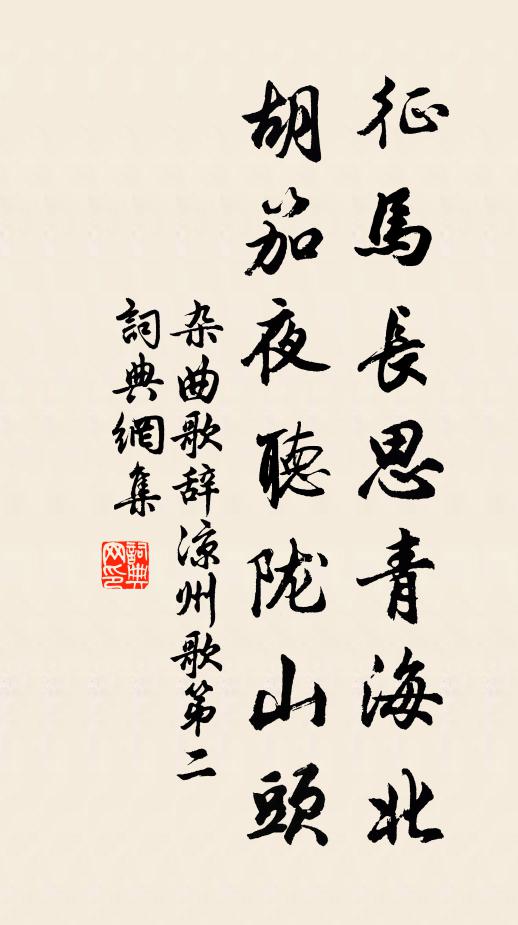 征馬長思青海北
胡笳夜聽陇山頭
杂曲歌辞凉州歌第二
詞典網集
詞典网印